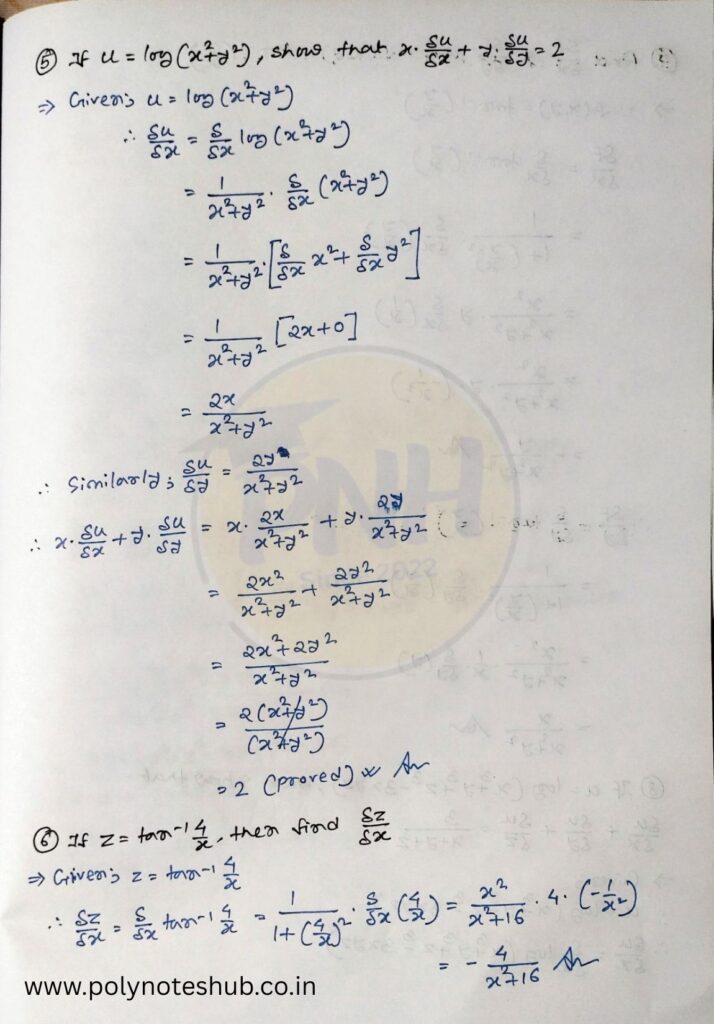 ⑤ If u = log(x²+y²), show that x·δu/δx + y·δu/δy = 2
⇒ Given; u = log(x²+y²)
∴ δu/δx = δ/δx log(x²+y²)
= 1/(x²+y²) · δ/δx (x²+y²)
= 1/(x²+y²) · [δ/δx x² + δ/δx y²]
= 1/(x²+y²) [2x+0]
= 2x/(x²+y²)
∴ Similarly; δu/δy = 2y/(x²+y²)
∴ x·δu/δx + y·δu/δy = x· 2x/(x²+y²) + y· 2y/(x²+y²)
= 2x²/(x²+y²) + 2y²/(x²+y²)
= (2x²+2y²)/(x²+y²)
= 2(x²+y²)/(x²+y²)
= 2 (proved) Ans
⑥ If z = tan⁻¹ 4/x, then find δz/δx
⇒ Given; z = tan⁻¹ 4/x
∴ δz/δx = δ/δx tan⁻¹ 4/x = 1/(1+(4/x)²) · δ/δx (4/x) = x²/(x²+16) · 4 · (-1/x²)
= - 4/(x²+16) Ans
PNH
Since 2022
www.polynoteshub.co.in